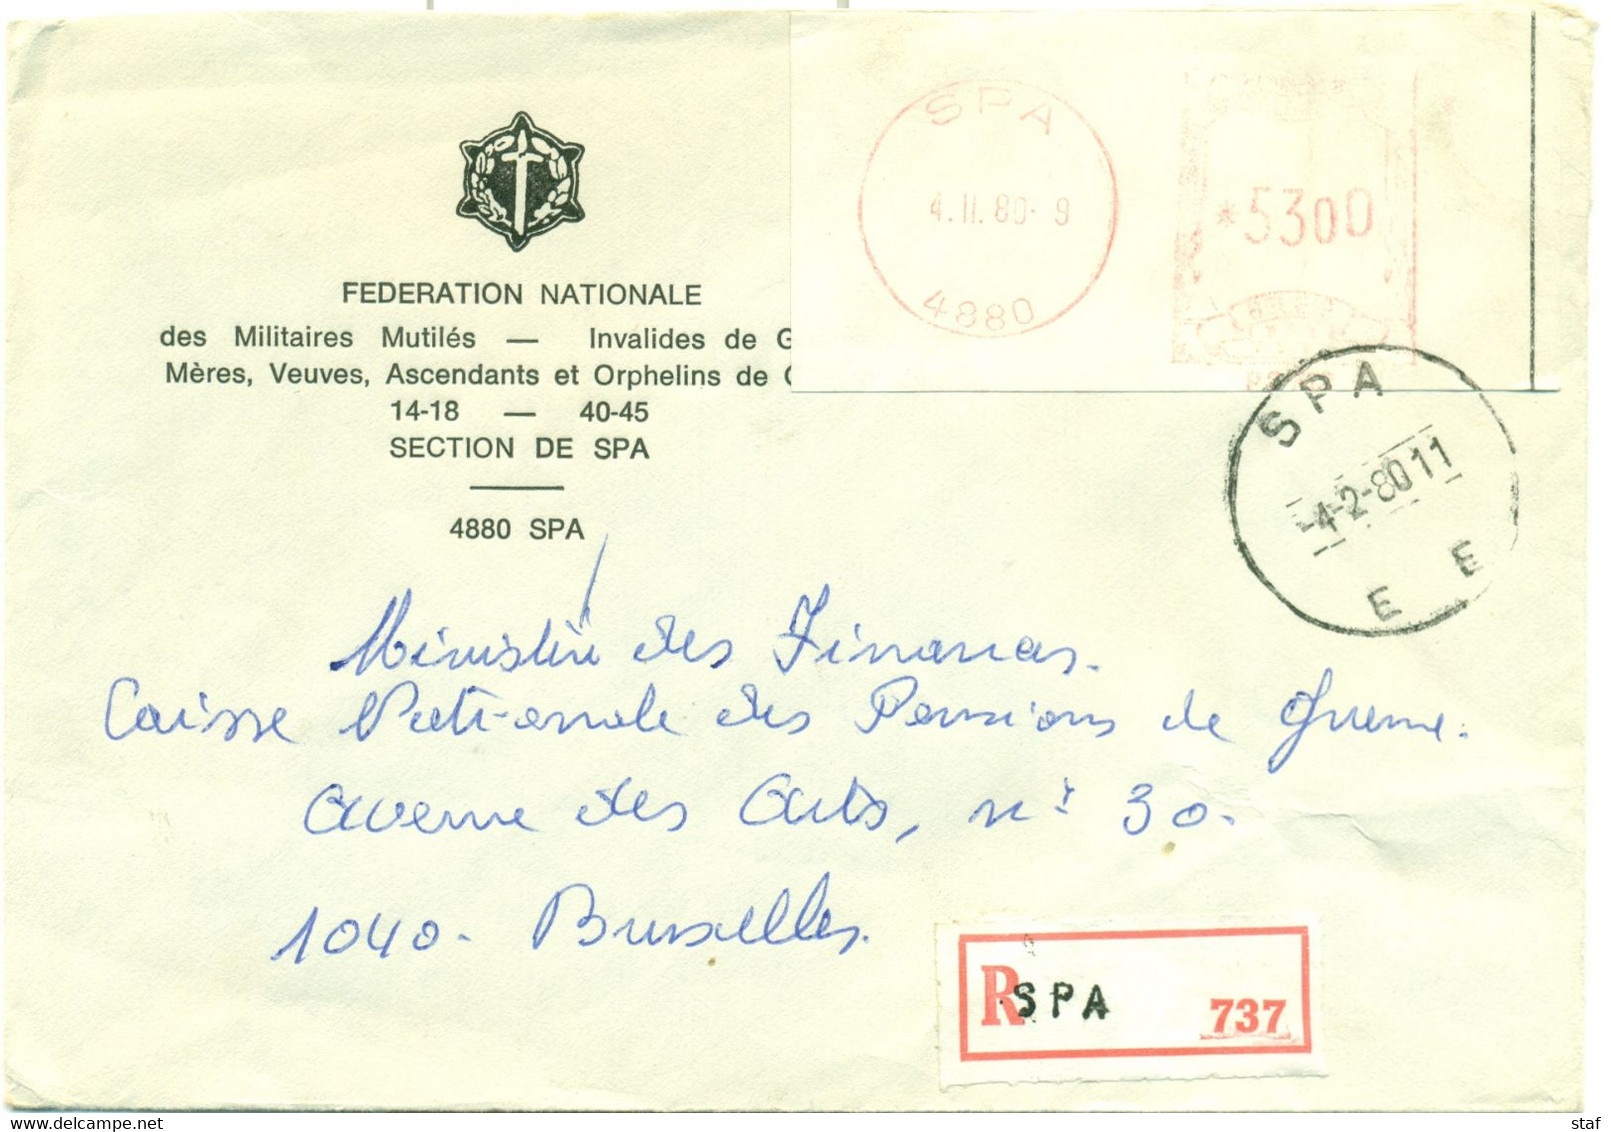 SPA
4.II.80-9
4880
*5300
FEDERATION NATIONALE
des Militaires Mutilés — Invalides de G
Mères, Veuves, Ascendants et Orphelins de
14-18 — 40-45
SECTION DE SPA
4880 SPA
SPA
4-2-80 11
E E
Ministère des Finances.
Caisse Nationale des Pensions de Guerre.
Avenue des Arts, n° 30.
1040. Bruxelles.
R SPA 737
staf